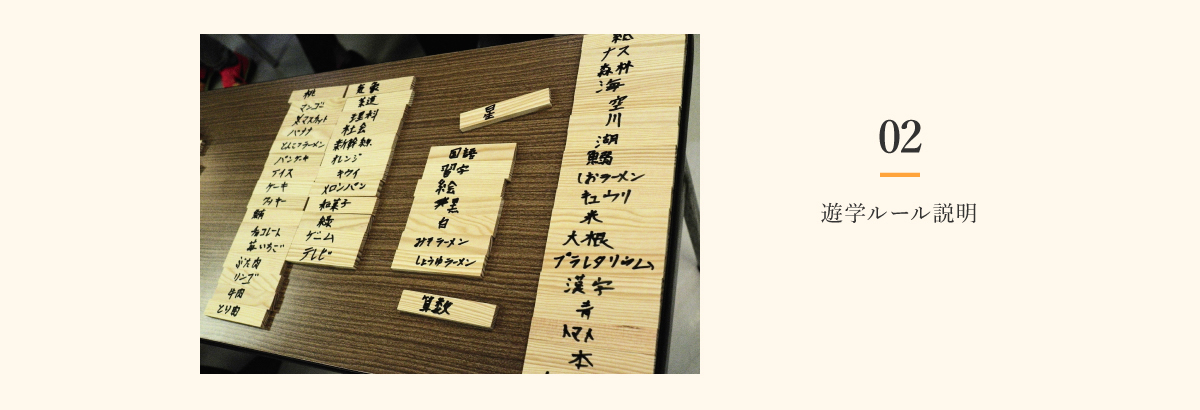 桃
マンゴー
バナナ
とんこつラーメン
パンケーキ
アイス
ケーキ
クッキー
鮪
チョコレート
苺いちご
ぶた肉
リンゴ
牛肉
とり肉
茶道
理科
社会
新幹線
オレンジ
キウイ
メロンパン
和菓子
緑
ゲーム
テレビ
星
国語
習字
絵
黒
白
みそラーメン
しょうゆラーメン
算数
ナス
森林
海
空
川
湖
鰯
しおラーメン
キュウリ
米
大根
プラレタリウム
漢字
青
トマト
本
02
遊学ルール説明